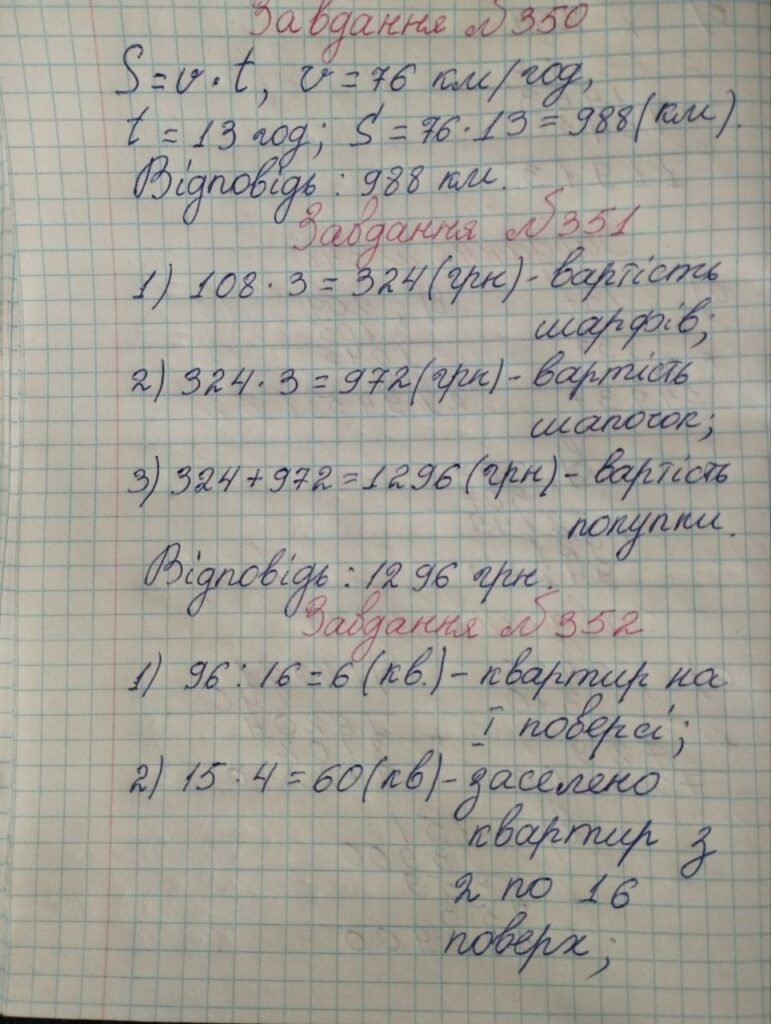 Завдання №350
S=v·t, v=76 км/год,
t=13 год; S=76·13=988(км).
Відповідь: 988 км.
Завдання №351
1) 108·3=324(грн)-вартість
шарфів;
2) 324·3=972(грн)-вартість
шапочок;
3) 324+972=1296(грн)-вартість
покупки.
Відповідь: 1296 грн.
Завдання №352
1) 96:16=6(кв.)-квартир на
I поверсі;
2) 15·4=60(кв)-заселено
квартир з
2 по 16
поверх;